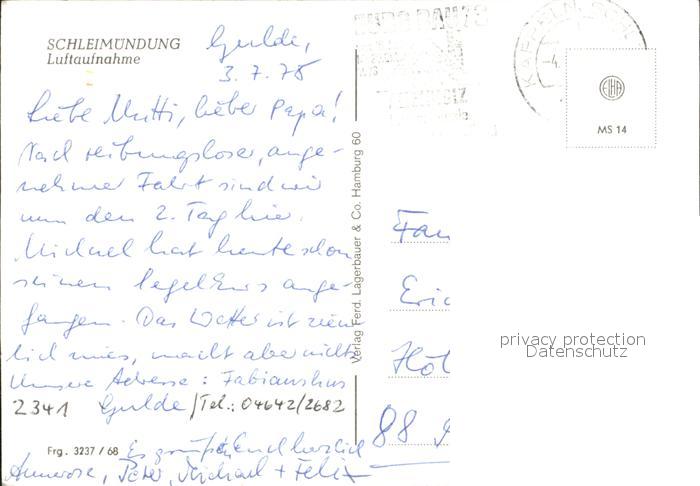 SCHLEIMÜNDUNG
Luftaufnahme
Gulde,
3.7.78
Liebe Mutti, lieber Papa!
Nach reibungsloser, ange-
nehmer Fahrt sind wir
nun den 2. Tag hier.
Michael hat heute schon
seinen Segelkurs ange-
fangen. Das Wetter ist ziem
lich mies, macht aber nichts.
Unsere Adresse:
2341 Gulde / Tel.: 04642/2682
Es grüßen herzlich
Annerose, Peter, Michael + Felix
Frg. 3237 / 68
Verlag Ferd. Lagerbauer & Co. Hamburg 60
KAPPELN
ELHA
MS 14
Fam
Eric
Höl
88
privacy protection
Datenschutz